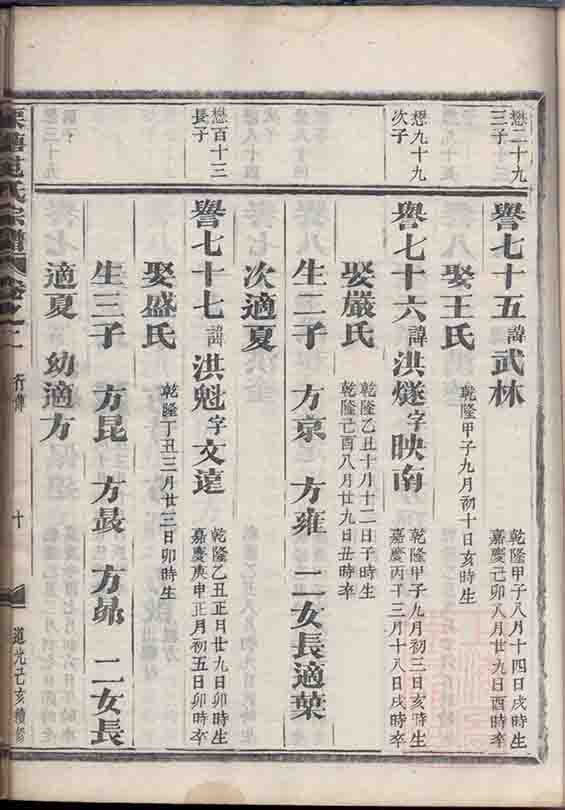 懋二十九
三子
譽七十五諱武林
乾隆甲子八月十四日戌時生
嘉慶己卯八月廿九日酉時卒
娶王氏
乾隆甲子九月初十日亥時生
懋九十九
次子
譽七十六諱洪燧字映南
乾隆甲子九月初三日亥時生
嘉慶丙子三月十八日戌時卒
娶嚴氏
乾隆乙丑十月十二日子時生
乾隆己酉八月廿九日丑時卒
生二子 方京 方雍 二女長適葉
次適夏
懋百十三
長子
譽七十七諱洪魁字文遠
乾隆乙丑正月廿九日卯時生
嘉慶庚申正月初五日卯時卒
娶盛氏
乾隆丁丑三月廿三日卯時生
生三子 方昆 方晸 方昴 二女長
適夏 幼適方
范氏宗譜 卷之 行傳 十
道光己亥續修